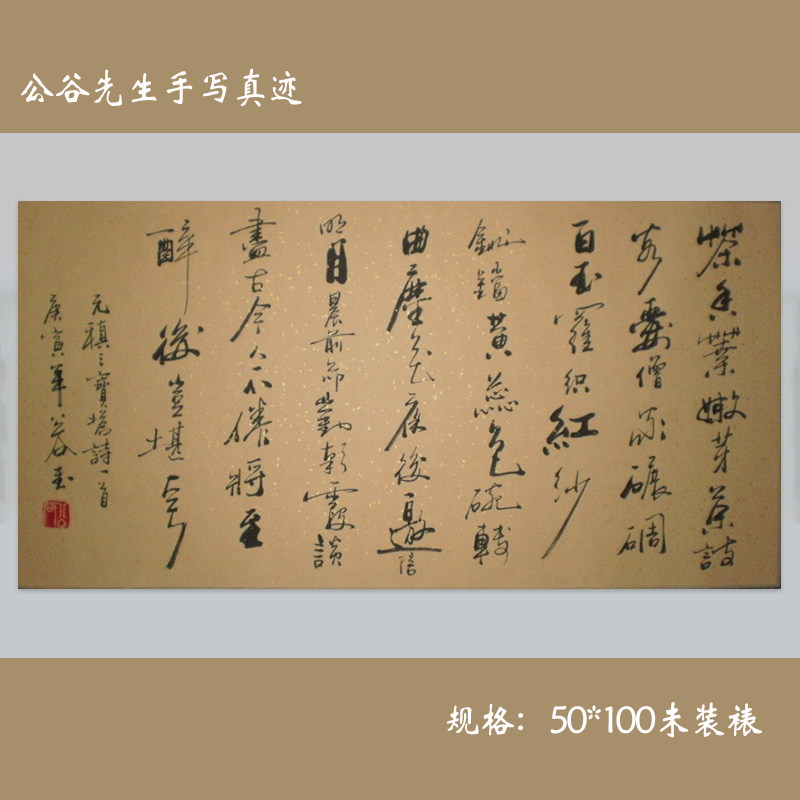 公谷先生手写真迹
茶香葉嫩芽慕詩
客愛僧家碾碉
白玉羅織紅紗
銚鐺黃蕊色碗轉
曲塵花夜後邀陪
明月晨前對朝霞
盡古今人不倦將至
醉後豈堪夸
元稹之寶塔詩一首
庚寅年公谷書
规格:50*100未装裱